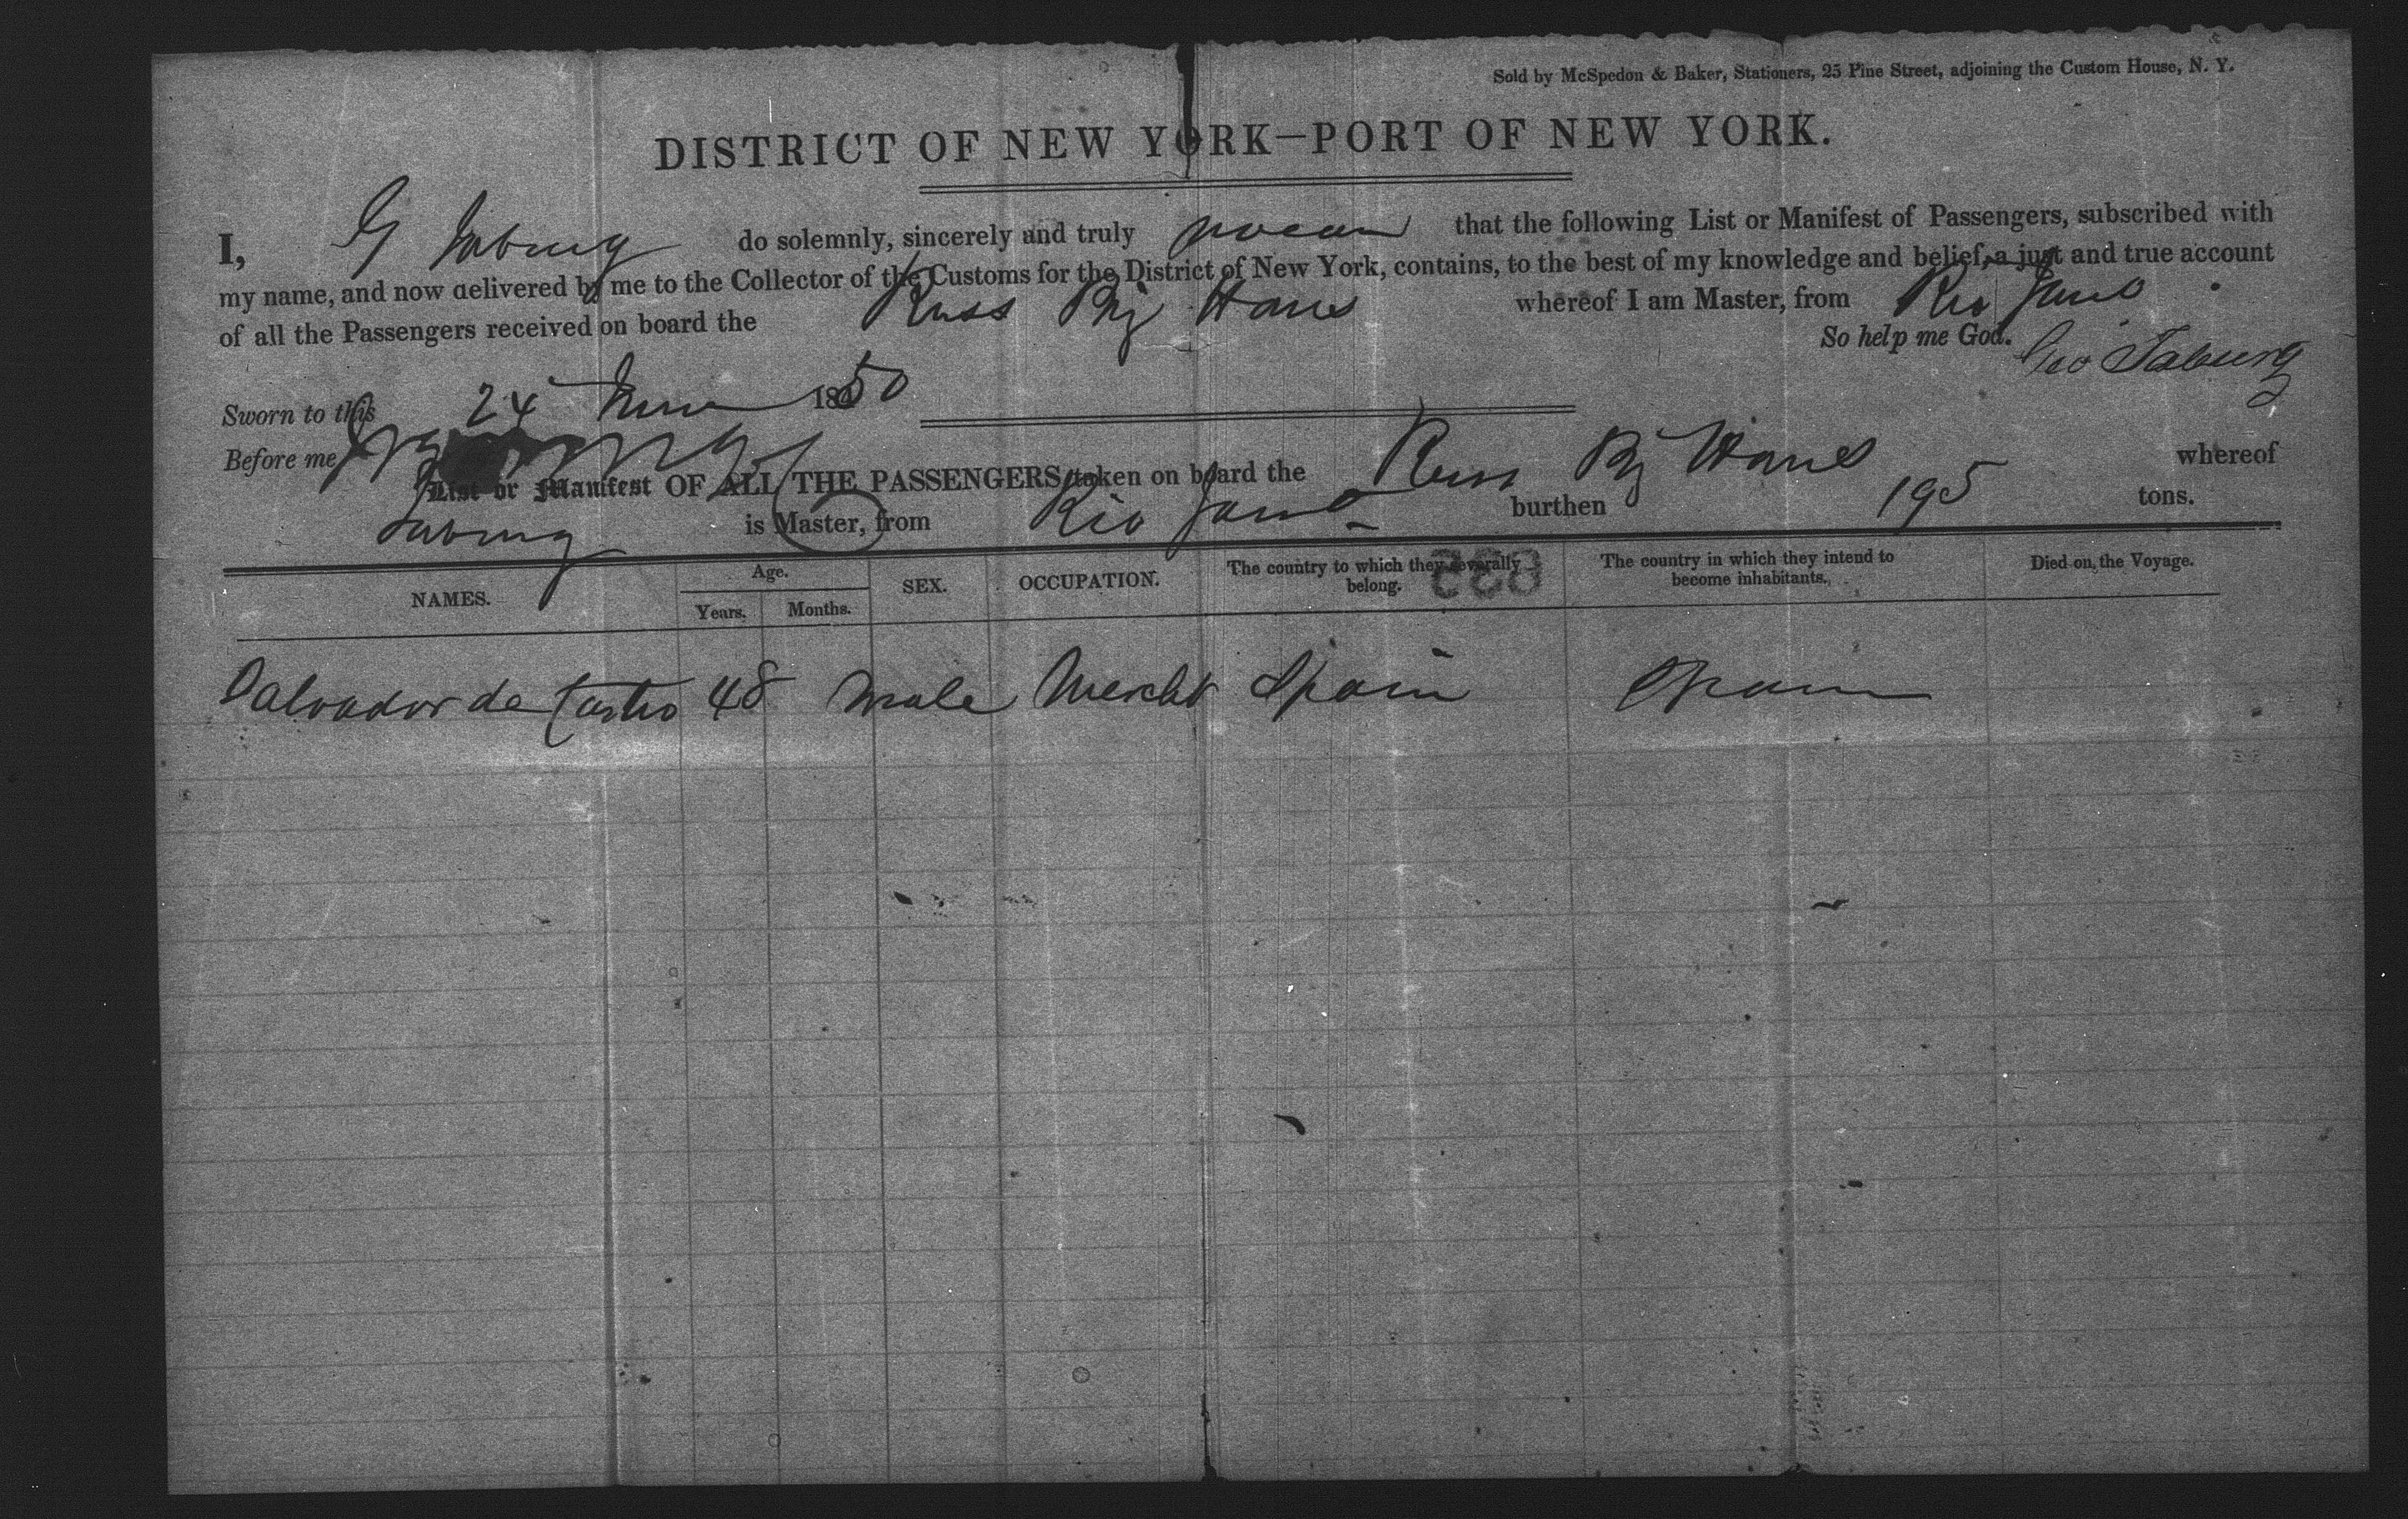 Sold by McSpedon & Baker, Stationers, 25 Pine Street, adjoining the Custom House, N. Y.
DISTRICT OF NEW YORK—PORT OF NEW YORK.
I, G Taburg do solemnly, sincerely and truly swear that the following List or Manifest of Passengers, subscribed with
my name, and now delivered by me to the Collector of the Customs for the District of New York, contains, to the best of my knowledge and belief, a just and true account
of all the Passengers received on board the Russ Brig whereof I am Master, from Rio Jano
So help me God.
Geo Taburg
Sworn to this 24 June 1850
Before me
List or Manifest OF ALL THE PASSENGERS taken on board the Russ Brig whereof
Taburg is Master, from Rio Jano burthen 195 tons.
NAMES. Age. Years. Months. SEX. OCCUPATION. The country to which they severally belong. The country in which they intend to become inhabitants. Died on the Voyage.
Salvador de Castro 48 male Mercht Spain Spain